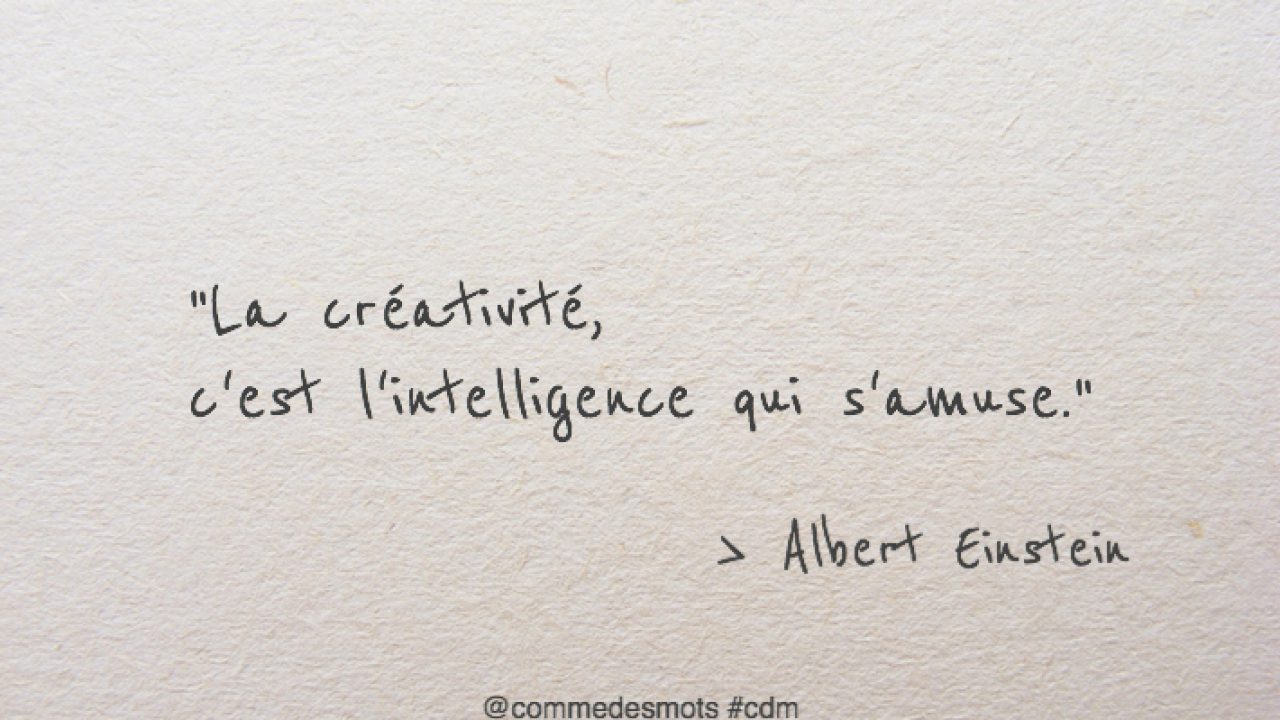 "La créativité,
c'est l'intelligence qui s'amuse."
> Albert Einstein
@commedesmots #cdm